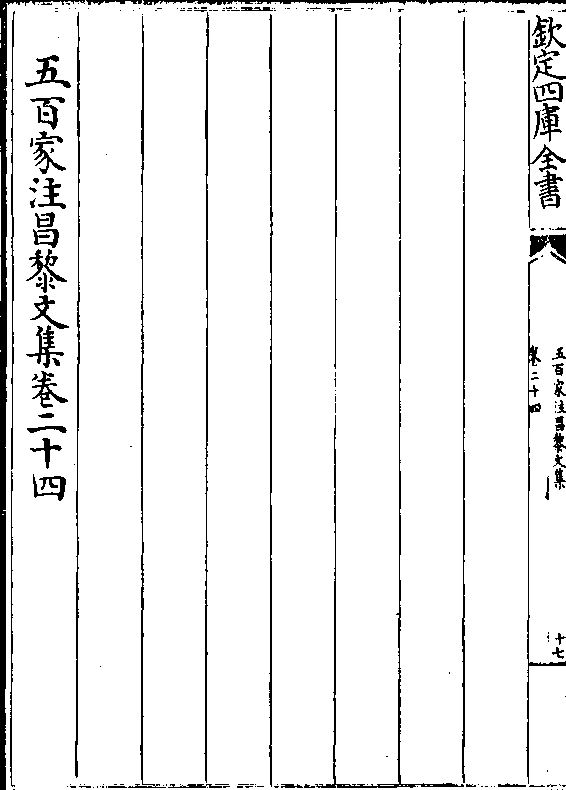 欽定四庫全書
五百家注昌黎文集
卷二十四
十七
五百家注昌黎文集卷二十四